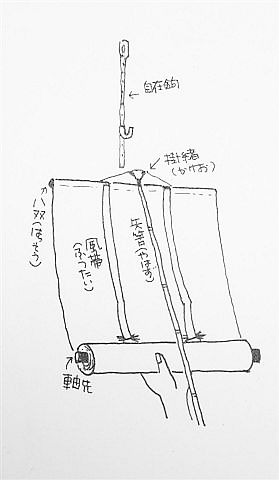 自在鈎
掛緒
(かけお)
八双(はっそう)
風帯
(ふうたい)
矢筈(やはず)
軸先